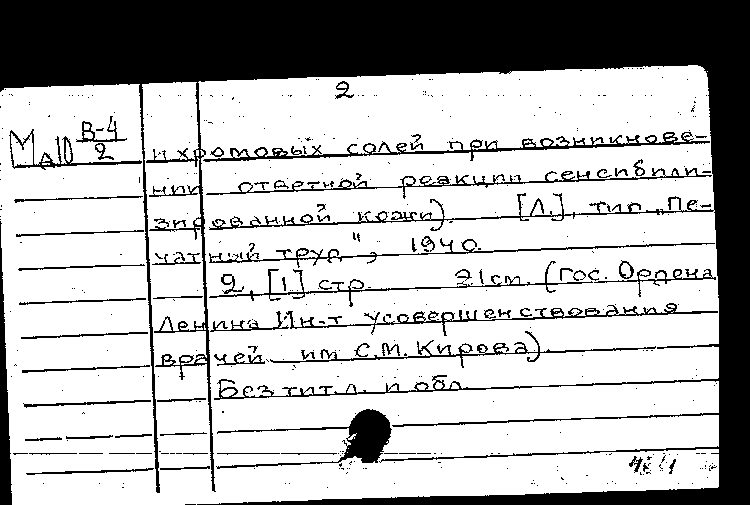 2
В-4
2
и хромовых солей при возникнове-
нии ответной реакции сенсибили-
зированной кожи). [Л.], тип. „Пе-
чатный труд", 1940.
2, [1] стр. 21 см. (Гос. Ордена
Ленина Ин-т усовершенствования
врачей им С.М. Кирова).
Без тит. л. и обл.